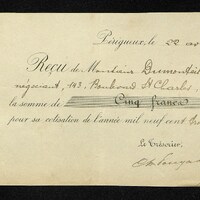 Périgueux, le 22
Reçu de Monsieur Dumont
négociant, 143, Boulevard St Charles
la somme de Cinq francs
pour sa cotisation de l'année mil neuf cent
Le Trésorier,